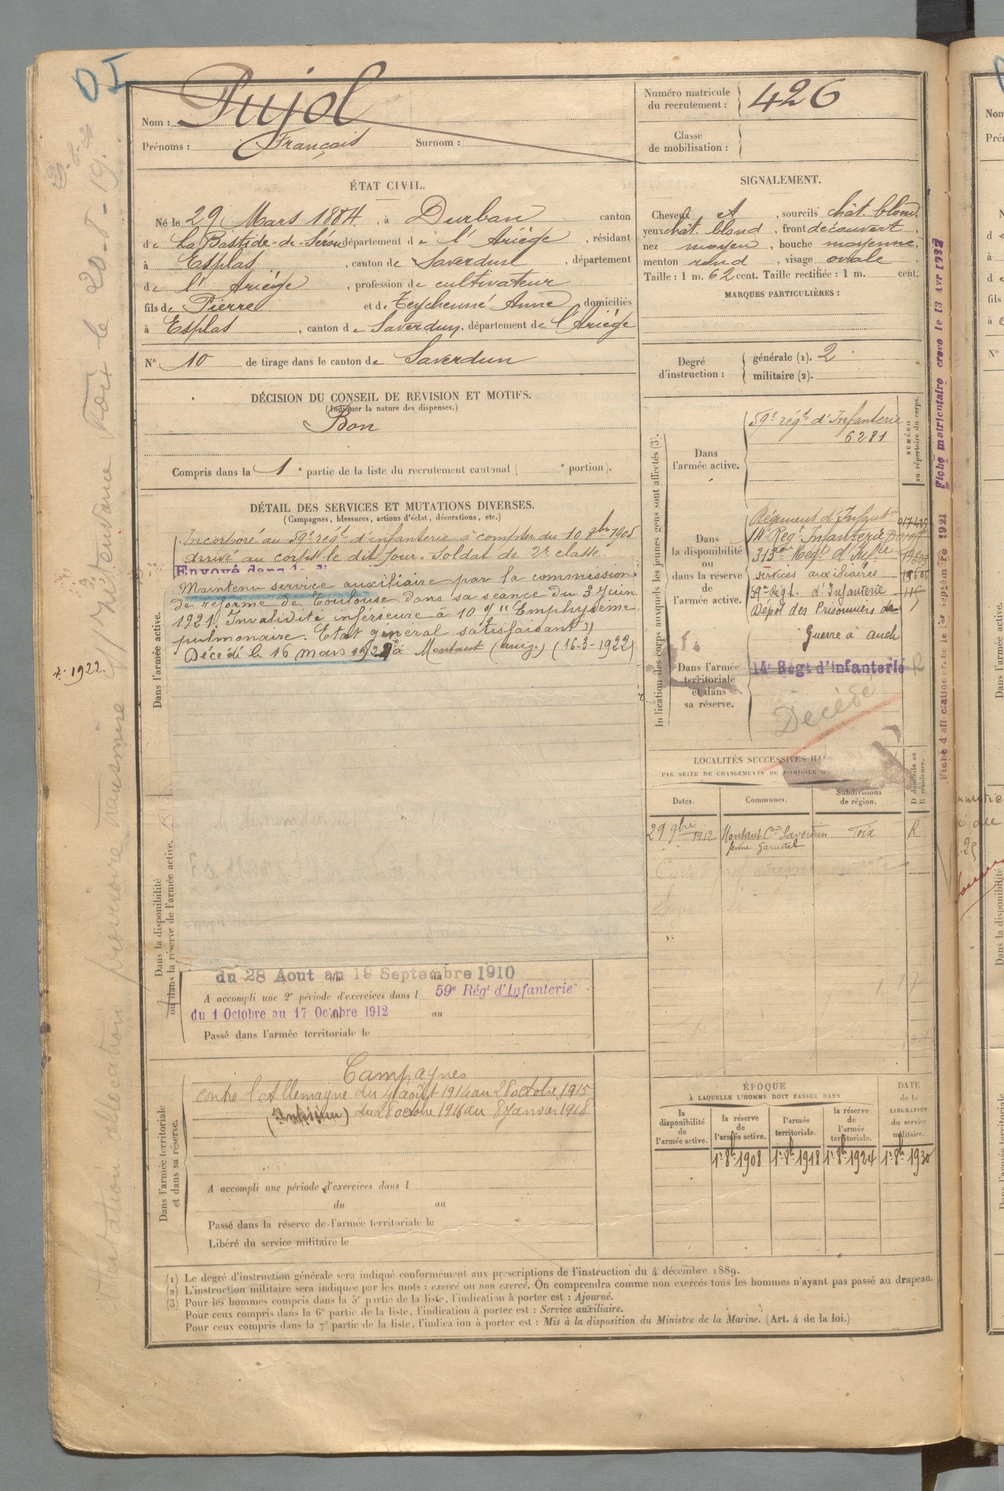 Nom : Pujol
Prénoms : François Surnom :
Numéro matricule du recrutement : 426
Classe de mobilisation :
ÉTAT CIVIL.
Né le 29 Mars 1884, à Durban canton
de La Bastide-de-Sérou département de l'Ariège, résidant
à Esplas, canton de Saverdun, département
de l'Ariège, profession de cultivateur
fils de Pierre et de Teycheunné Anne, domiciliés
à Esplas, canton de Saverdun, département de l'Ariège
N° 10 de tirage dans le canton de Saverdun
SIGNALEMENT.
Cheveux et sourcils chât. blond
yeux chât. blond, front découvert
nez moyen, bouche moyenne
menton rond, visage ovale
Taille : 1 m. 62 cent. Taille rectifiée : 1 m. cent.
MARQUES PARTICULIÈRES :
Degré d'instruction : générale (1). 2
militaire (2).
DÉCISION DU CONSEIL DE REVISION ET MOTIFS.
(Indiquer la nature des dispenses.)
Bon
Compris dans la 1e partie de la liste du recrutement cantonal ( e portion).
DÉTAIL DES SERVICES ET MUTATIONS DIVERSES.
(Campagnes, blessures, actions d'éclat, décorations, etc.)
Dans l'armée active.
Incorporé au 59e régt d'infanterie à compter du 10 8bre 1905
Arrivé au corps le dit jour. Soldat de 2e classe
Envoyé dans la di
Maintenu service auxiliaire par la commission
de réforme de Toulouse dans sa séance du 3 juin
1921. Invalidité inférieure à 10 % "Emphysème
pulmonaire. Etat général satisfaisant"
Décédé le 16 mars 1922 à Montaut (Arièg.) (16-3-1922)
Dans la disponibilité ou dans la réserve de l'armée active.
du 28 Aout au 19 Septembre 1910
A accompli une 2e période d'exercices dans l 59e Régt d'Infanterie
du 1 Octobre au 17 Octobre 1912 au
Passé dans l'armée territoriale le
Dans l'armée territoriale et dans sa réserve.
Campagnes
contre l'Allemagne du 4 août 1914 au 28 octobre 1915
(Intérieur) du 28 octobre 1916 au 8 Janvier 1918
A accompli une période d'exercices dans l
du au
Passé dans la réserve de l'armée territoriale le
Libéré du service militaire le
Indication des corps auxquels les jeunes gens sont affectés (3).
NUMÉRO au répertoire du corps.
Dans l'armée active.
59e régt d'Infanterie
6281
Dans la disponibilité ou dans la réserve de l'armée active.
Régiment d'Infant
14e Régt Infanterie
313me Régt d'Inftie
services auxiliaires
59e Régt. d'Infanterie
Dépôt des Prisonniers de
Guerre à auch
Dans l'armée territoriale et dans sa réserve.
14e Régt d'infanterie R
Décédé
LOCALITÉS SUCCESSIVES
PAR SUITE DE CHANGEMENTS DE DOMICILE
Dates. Communes. Subdivisions de région. D domicile ou R résidence.
29 9bre 1912 Montaut Con Saverdun Foix R
ÉPOQUE
À LAQUELLE L'HOMME DOIT PASSER DANS
DATE de la LIBÉRATION du service militaire.
la disponibilité de l'armée active. la réserve de l'armée active. l'armée territoriale. la réserve de l'armée territoriale.
1er 8b 1908 1er 8b 1918 1er 8b 1924 1er 8b 1930
Fiche matriculaire créée le 13 Avr 1922
(1) Le degré d'instruction générale sera indiqué conformément aux prescriptions de l'instruction du 4 décembre 1889.
(2) L'instruction militaire sera indiquée par les mots : exercé ou non exercé. On comprendra comme non exercés tous les hommes n'ayant pas passé au drapeau.
(3) Pour les hommes compris dans la 5e partie de la liste, l'indication à porter est : Ajourné.
Pour ceux compris dans la 6e partie de la liste, l'indication à porter est : Service auxiliaire.
Pour ceux compris dans la 7e partie de la liste, l'indication à porter est : Mis à la disposition du Ministre de la Marine. (Art. 4 de la loi.)